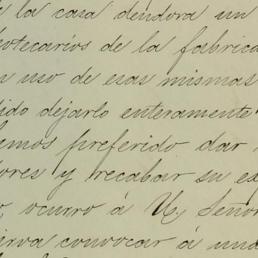 la casa deudora un
otecarios de la fabrica
n uso de esas mismas
ido dejarlo enteramente
emos preferido dar
ores y recabar su ex
o, ocurro á U, Señor
irva convocar á una